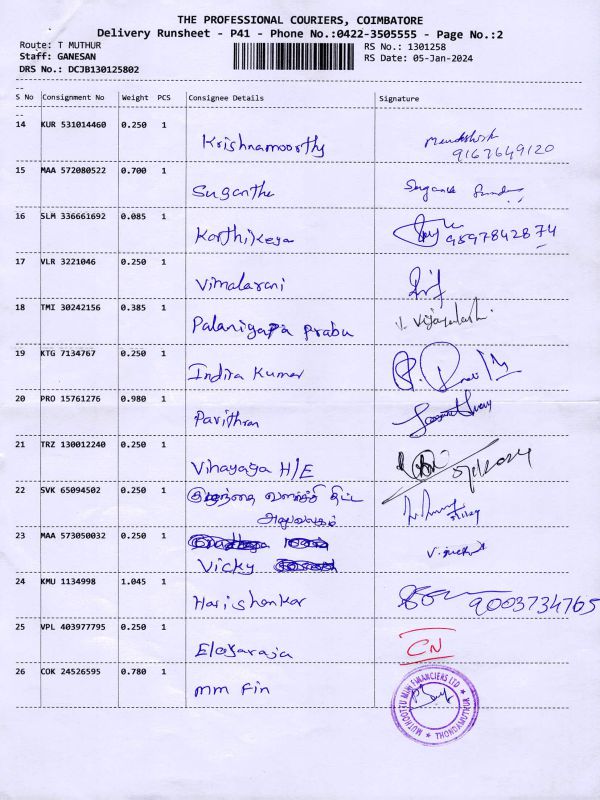 THE PROFESSIONAL COURIERS, COIMBATORE
Delivery Runsheet - P41 - Phone No.:0422-3505555 - Page No.:2
Route: T MUTHUR
RS No.: 1301258
Staff: GANESAN
RS Date: 05-Jan-2024
DRS No.: DCJB130125802
S No Consignment No Weight PCS Consignee Details Signature
14 KUR 531014460 0.250 1
Krishnamoorthy
9167649120
15 MAA 572080522 0.700 1
Sugantha
16 SLM 336661692 0.085 1
Karthikeya 9597842874
17 VLR 3221046 0.250 1
Vimalarani
18 TMI 30242156 0.385 1
Palanigapa prabu
19 KTG 7134767 0.250 1
Indira Kumar
20 PRO 15761276 0.980 1
Pavithran
21 TRZ 130012240 0.250 1
Vinayaga H/E
22 SVK 65094502 0.250 1
குழந்தை வளர்ச்சி திட்ட
அலுவலகம்
23 MAA 573050032 0.250 1
Vicky
24 KMU 1134998 1.045 1
Harishankar 9003734765
25 VPL 403977795 0.250 1
Elayaraja CN
26 COK 24526595 0.780 1
mm Fin
MUTHOOTTU MINI FINANCIERS LTD
THONDAMUTHUR